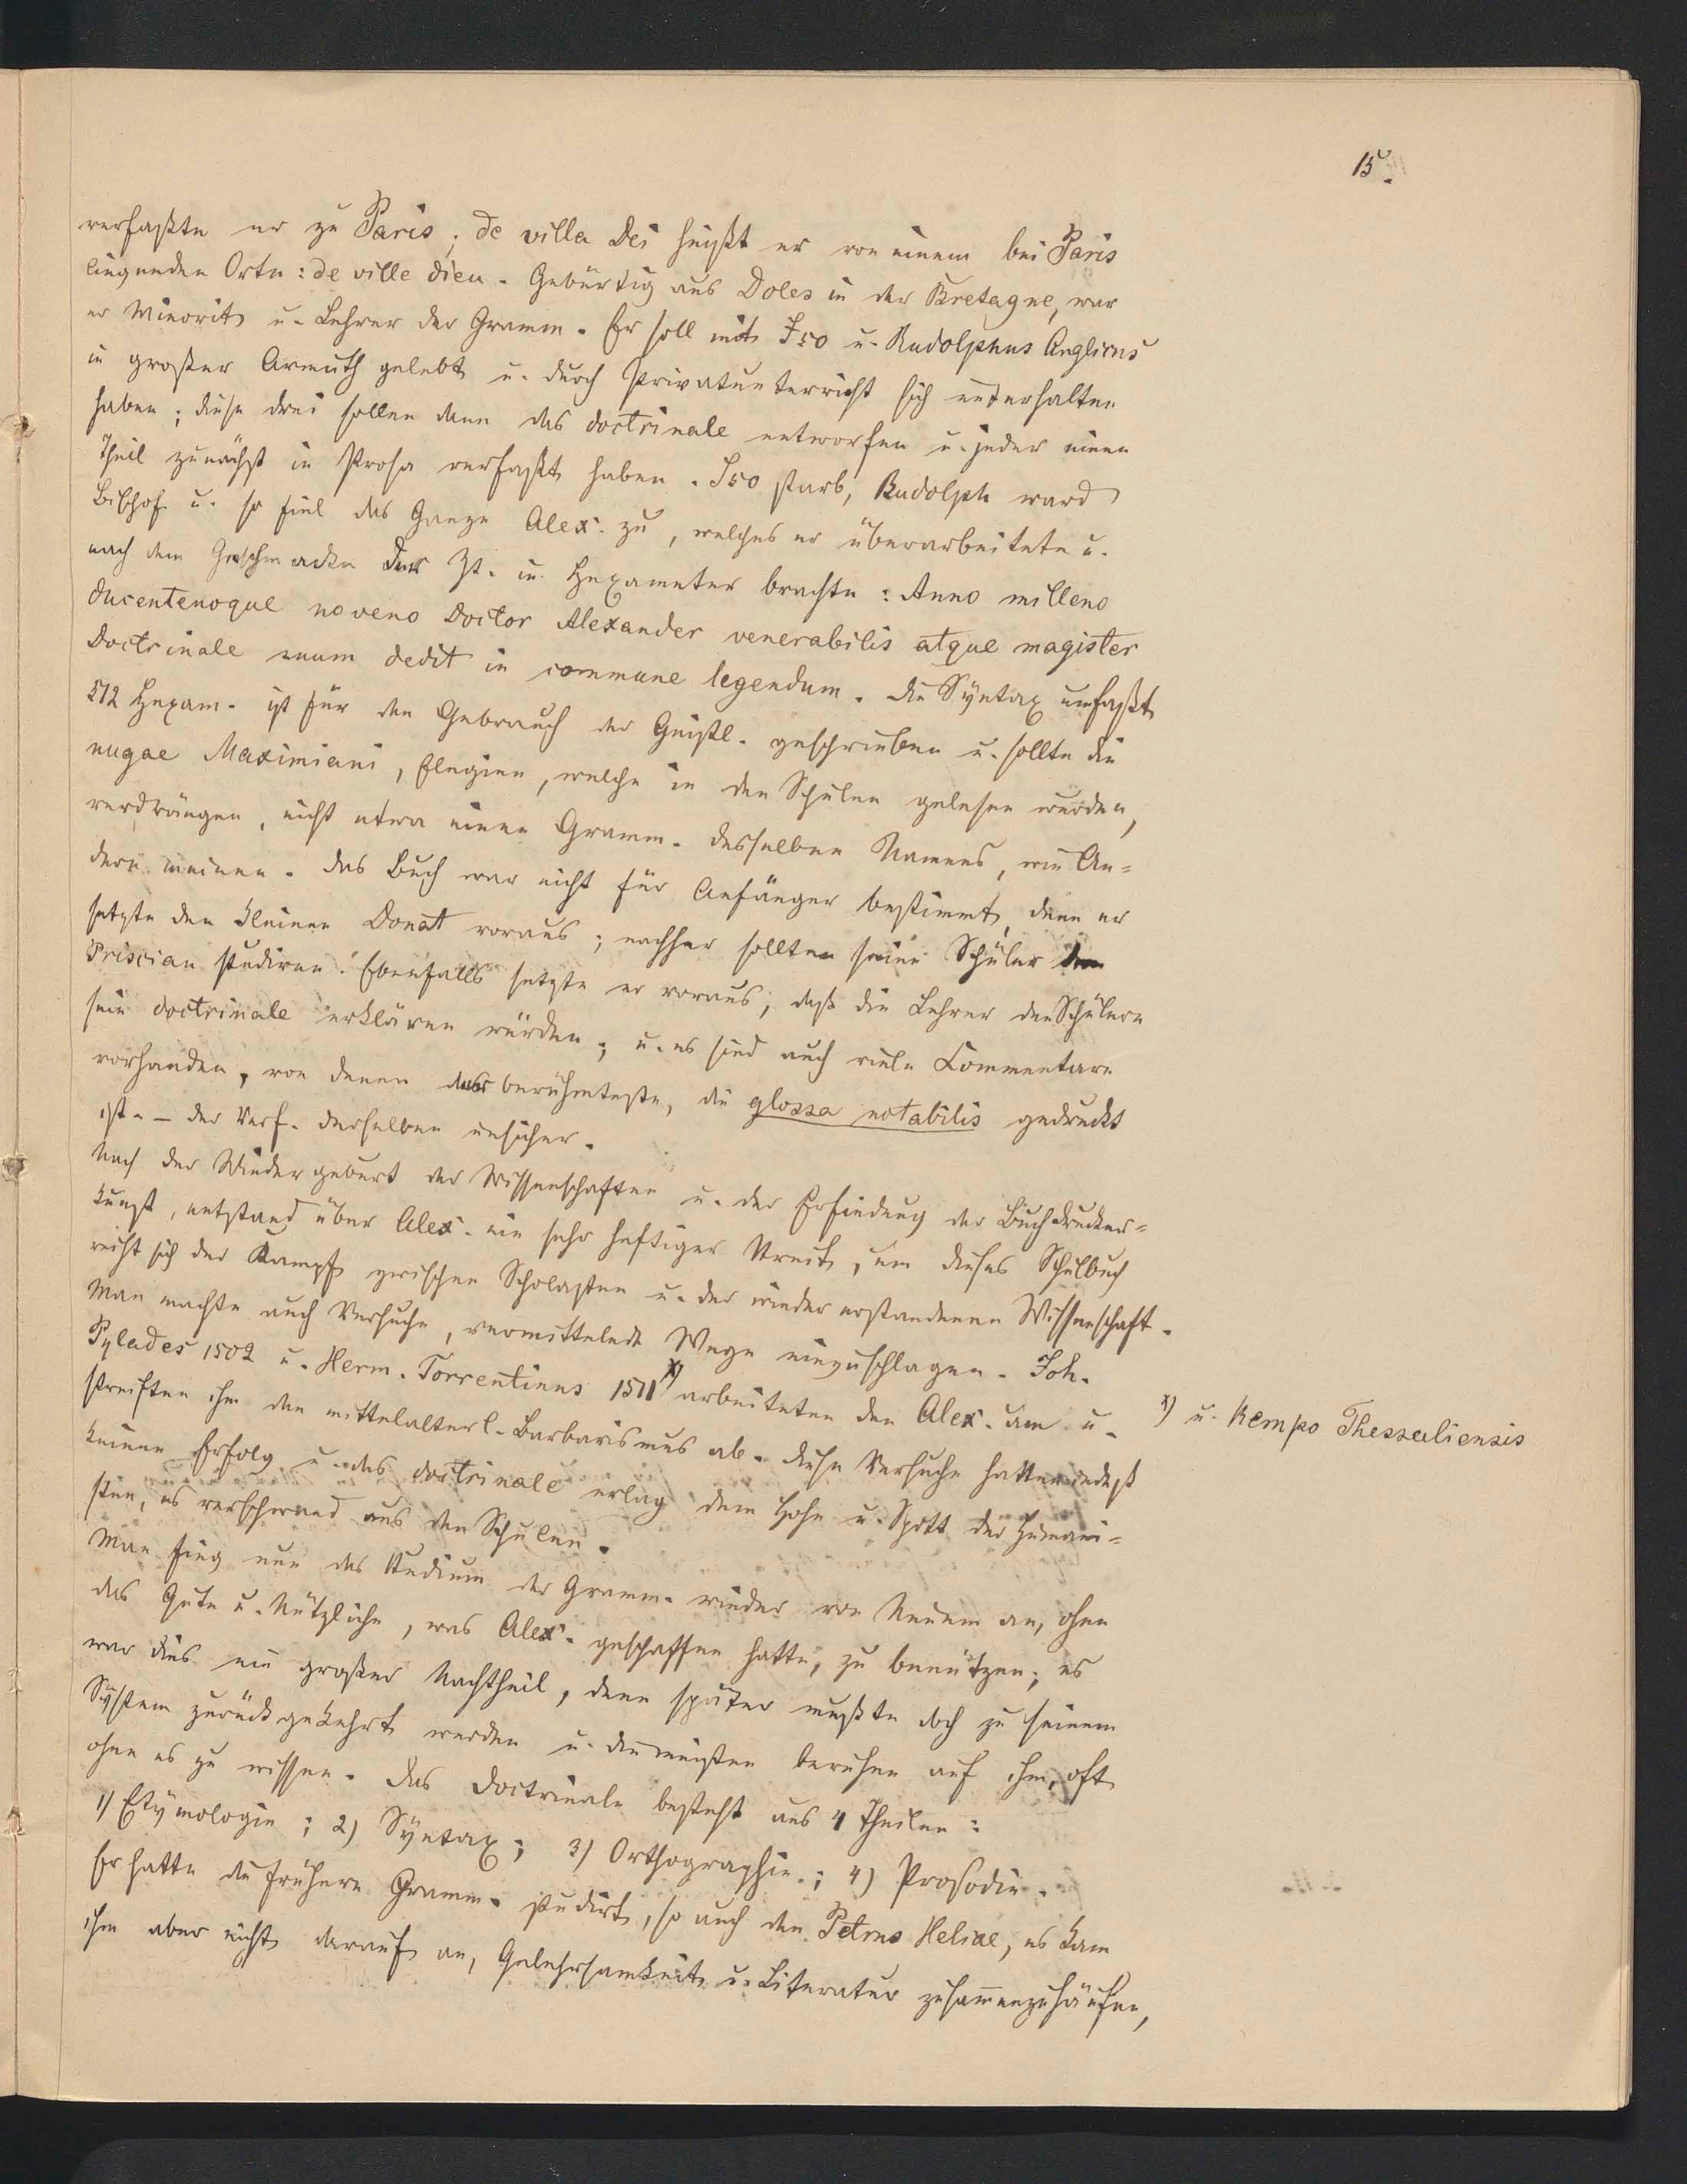 15.
verfaßte er zu Paris; de villa Dei heißt er von einem bei Paris
liegenden Orte: de ville dieu. Gebürtig aus Doles in der Bretagne, war
er Minorit u. Lehrer der Gramm. Er soll mit Iso u. Rudolphus Anglicus
in großer Armuth gelebt u. durch Privatunterricht sich unterhalten
haben; diese drei sollen dann das doctrinale entworfen u. jeder einen
Theil zunächst in Prosa verfaßt haben. Iso starb, Rudolph ward
Bischof u. so fiel das Ganze Alex. zu, welches er überarbeitete u.
nach dem Geschmacke der Zt. in Hexameter brachte: Anno milleno
ducentenoque noveno Doctor Alexander venerabilis atque magister
Doctrinale suum dedit in commune legendum. Die Syntax umfaßt
212 Hexam. ist für den Gebrauch der Geistl. geschrieben u. sollte die
nugae Maximiani, Elegien, welche in den Schulen gelesen wurden,
verdrängen, nicht etwa einen Gramm. desselben Namens, wie An-
dere meinen. Das Buch war nicht für Anfänger bestimmt, denn er
setzte den kleinen Donat voraus; nachher sollten seine Schüler den
Priscian studiren. Ebenfalls setzte er voraus, daß die Lehrer den Schülern
sein doctrinale erklären würden; u. es sind auch viele Commentare
vorhanden, von denen der berühmteste, die glossa notabilis gedruckt
ist. – der Verf. derselben unsicher.
Nach der Wiedergeburt der Wissenschaften u. der Erfindung der Buchdrucker-
kunst, entstand über Alex. ein sehr heftiger Streit, um dieses Schulbuch
reiht sich der Kampf zwischen Scholasten u. der wieder erstandenen Wissenschaft.
Man machte auch Versuche, vermittelnde Wege einzuschlagen. Joh.
Pylades 1502 u. Herm. Torrentinus 1511 x) arbeiteten den Alex. um u.
x) u. Kempo Thessaliensis
streiften ihm den mittelalterl. Barbarismus ab. Diese Versuche hatten indeß
keinen Erfolg u. das doctrinale erlag dem Hohn u. Spott der Humani-
sten, es verschwand aus den Schulen.
Man fing nun das Studium der Gramm. wieder von Neuem an, ohne
das Gute u. Nützliche, was Alex. geschaffen hatte, zu benützen; es
war dies ein großer Nachtheil, denn später mußte doch zu seinem
System zurückgekehrt werden u. die meisten beruhen auf ihm, oft
ohne es zu wissen. Das Doctrinale besteht aus 4 Theilen:
1) Etymologie; 2) Syntax; 3) Orthographie; 4) Prosodie.
Er hatte die frühere Gramm. studirt, so auch den Petrus Heliae, es kam
ihm aber nicht darauf an, Gelehrsamkeit u. Literatur zusammenzuhäufen,